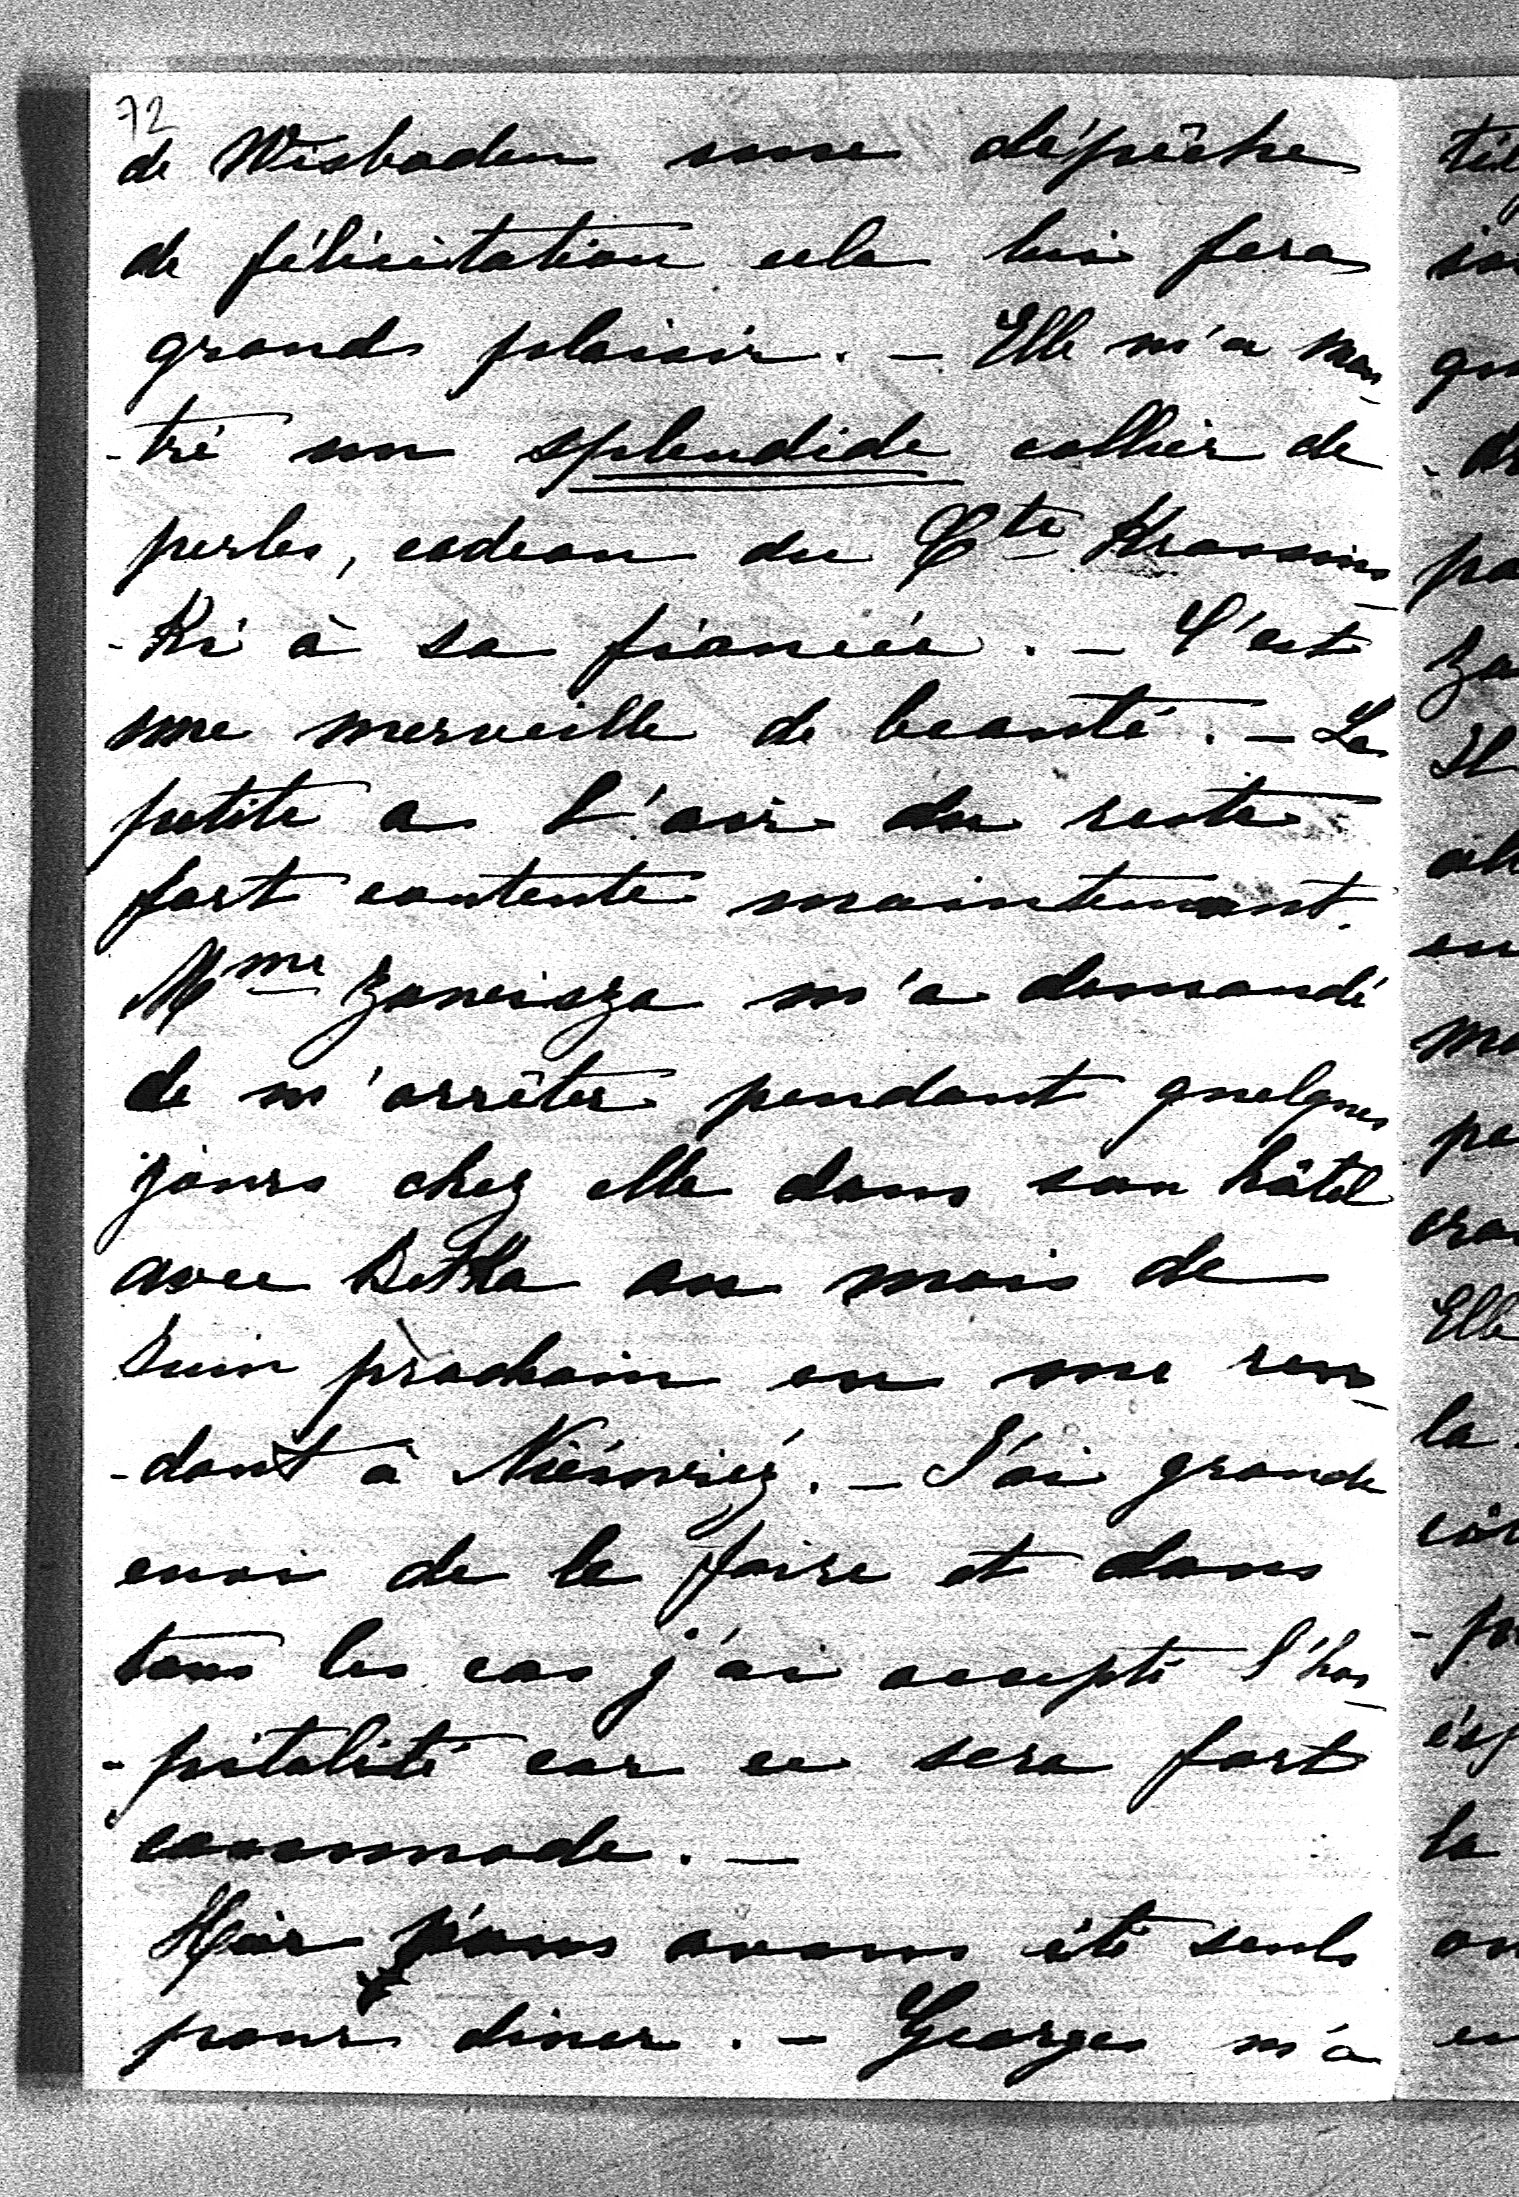 72
de Wisbaden une dépêche
de félicitation cela lui fera
grand plaisir. — Elle m'a mon-
-tré un splendide collier de
perles, cadeau du Cte Krassins-
-Ki à sa fiancée. — C'est
une merveille de beauté. — La
petite a l'air du reste
fort contente maintenant.
Mme Zawisza m'a demandé
de m'arrêter pendant quelques
jours chez elle dans son hôtel
avec Bitka au mois de
Juin prochain en me ren-
-dant à Nieświéz. — J'ai grande
envi de le faire et dans
tous les cas j'ai accepté l'hos-
-pitalité car ce sera fort
commode. —
Hier nous avons été seuls
pour diner. — Georges m'a